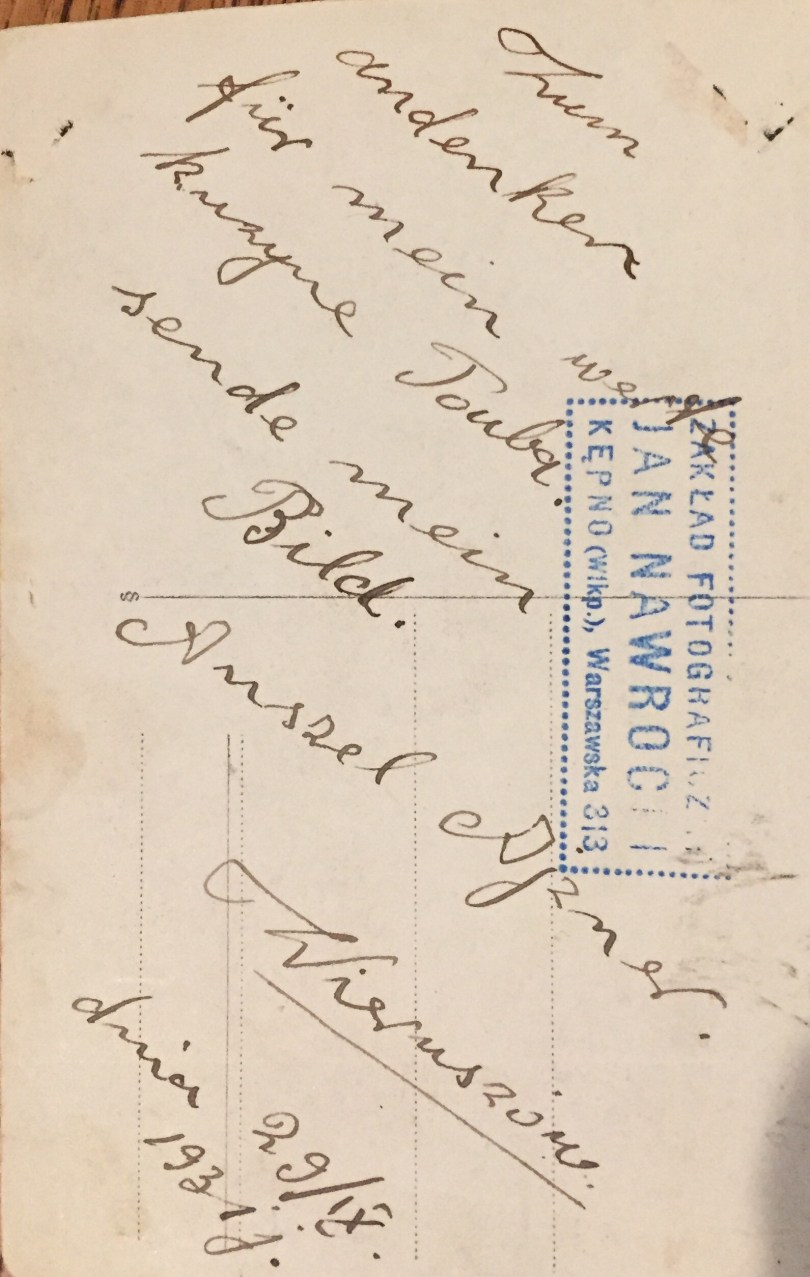 Zum
andenken
für mein
kuzyne Touba.
sende mein
Bild.
Anszel Ajzner.
Wieruszów.
dnia 29/IX.
1931 j.
ZAKŁAD FOTOGRAFICZ
JAN NAWROCKI
KĘPNO (Wlkp.), Warszawska 313